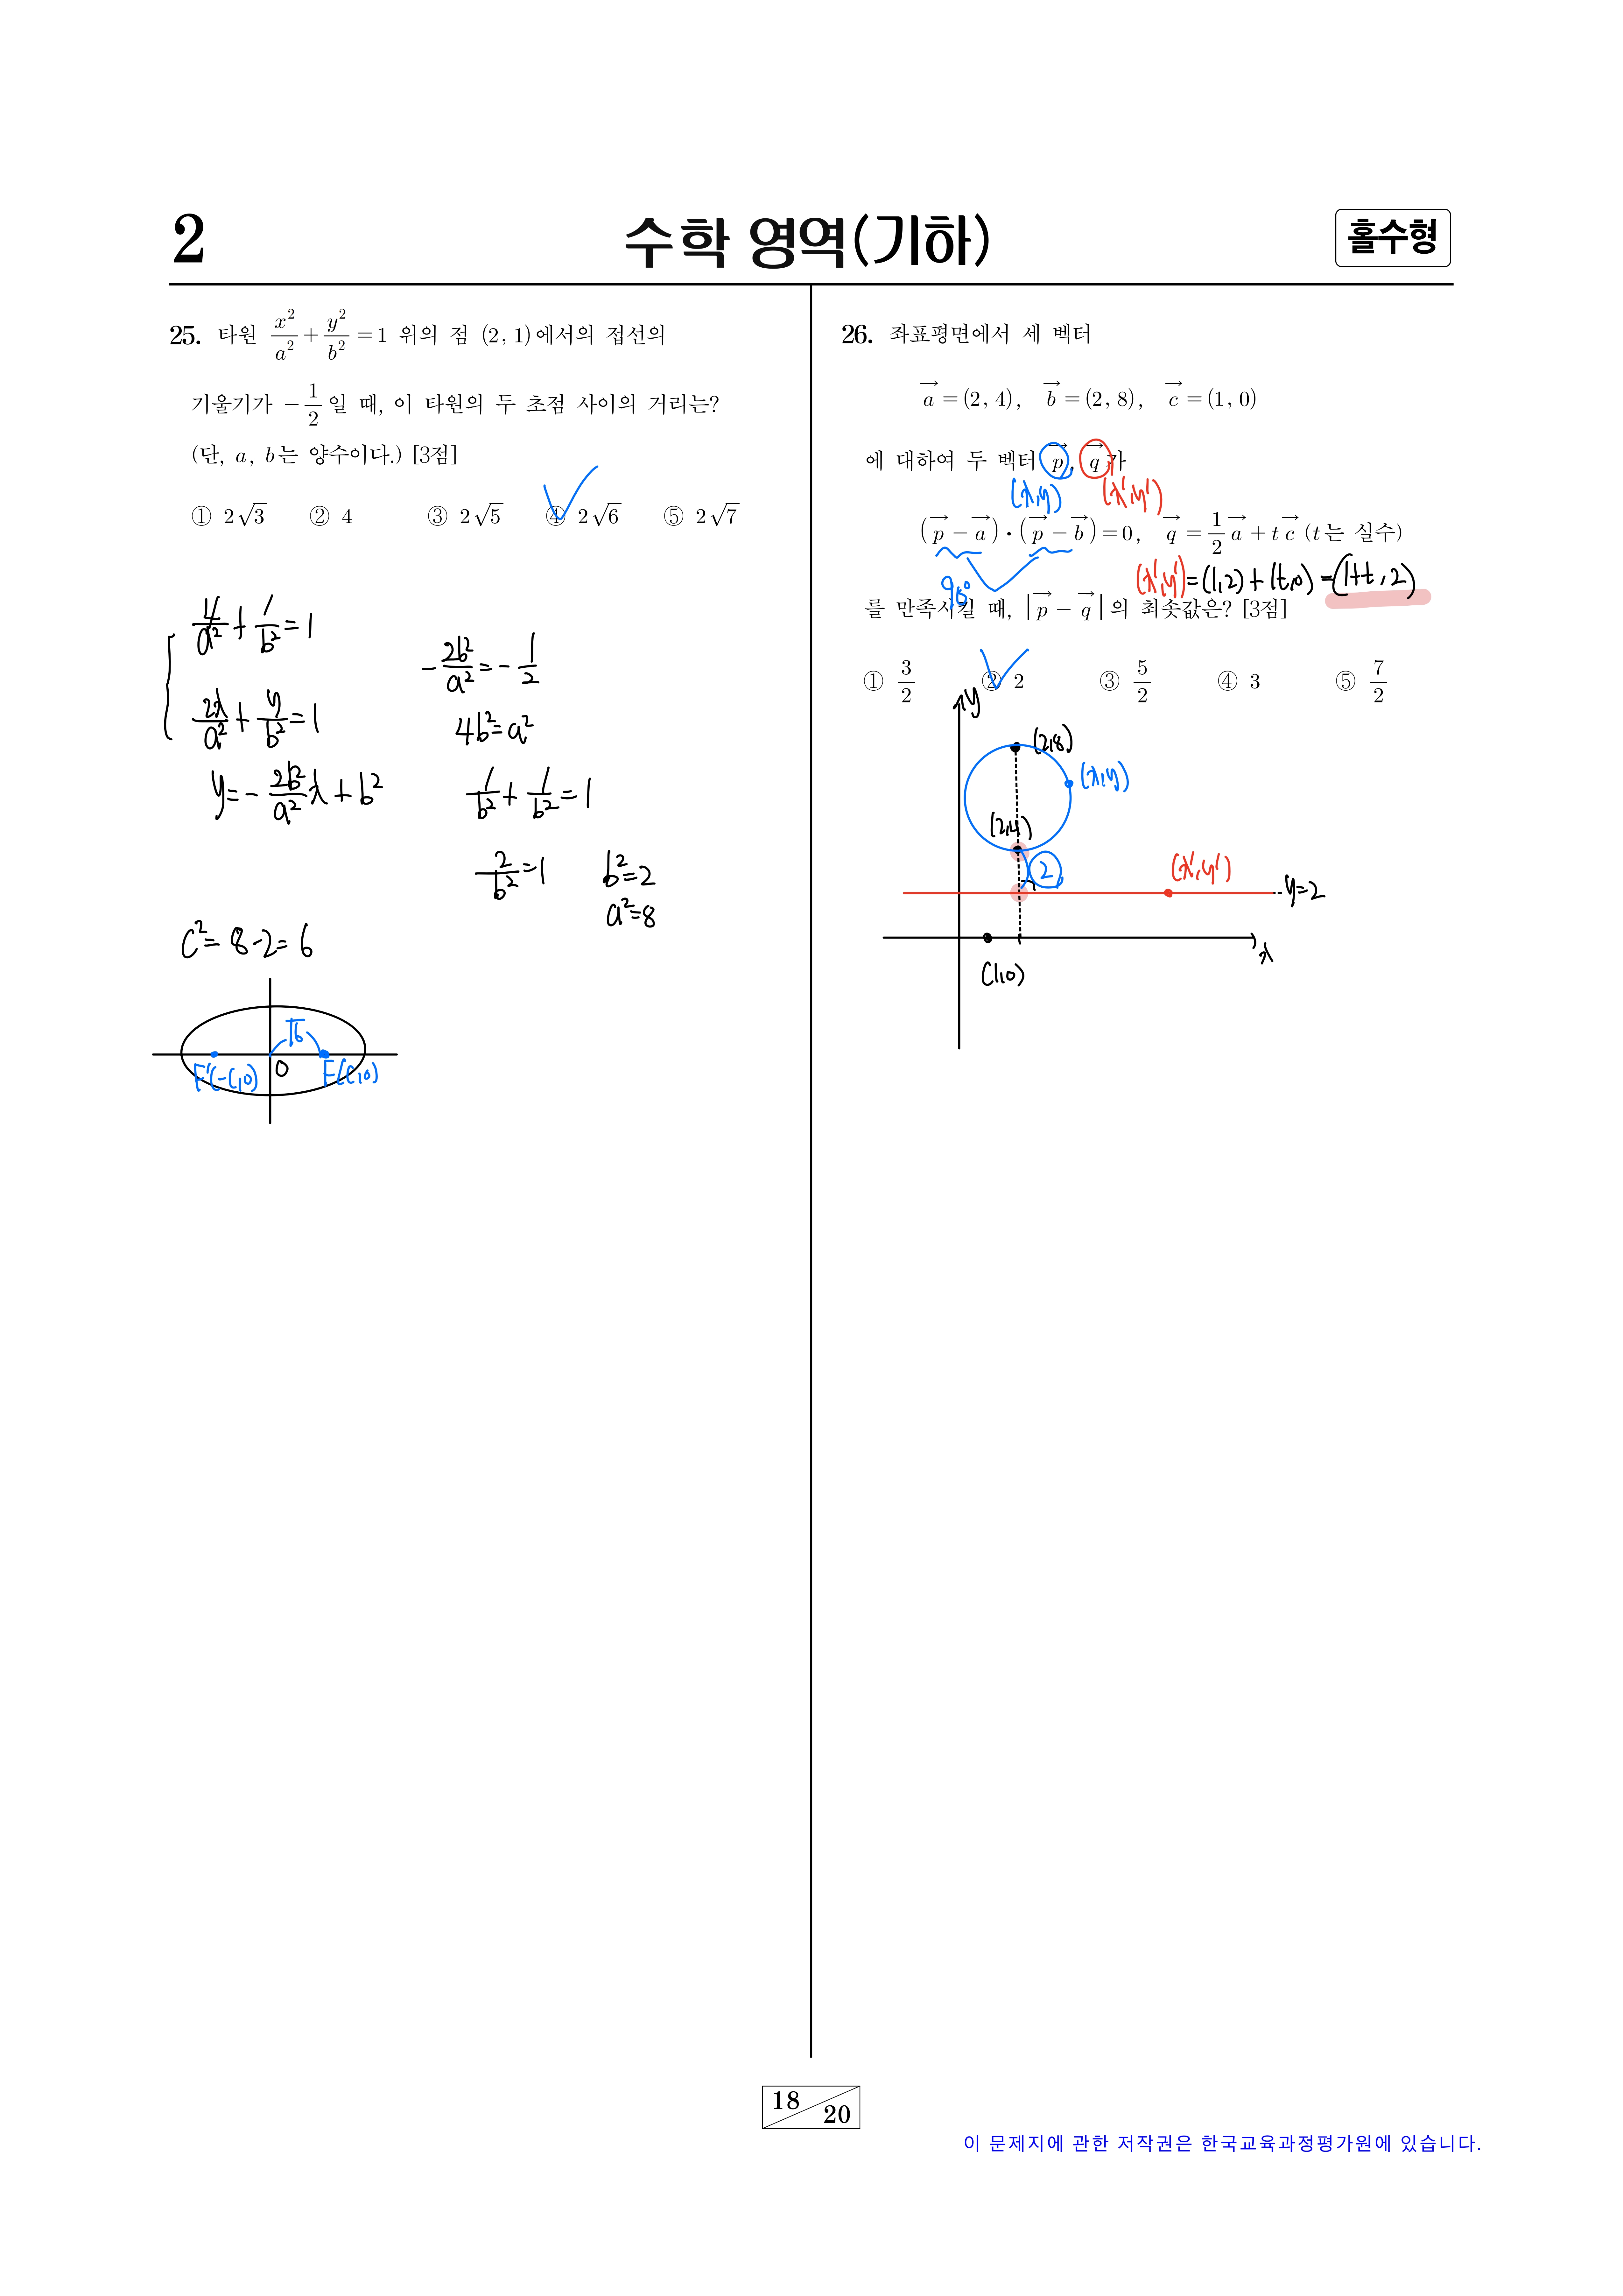 2
수학 영역(기하)
홀수형
25. 타원 x²/a² + y²/b² = 1 위의 점 (2, 1)에서의 접선의
기울기가 -1/2 일 때, 이 타원의 두 초점 사이의 거리는?
(단, a, b는 양수이다.) [3점]
① 2√3 ② 4 ③ 2√5 ④ 2√6 ⑤ 2√7
4/a² + 1/b² = 1
2x/a² + y/b² = 1
y = - 2b²/a² x + b²
- 2b²/a² = - 1/2
4b² = a²
1/b² + 1/b² = 1
2/b² = 1
b² = 2
a² = 8
c² = 8-2 = 6
√6
F'(-c,0) O F(c,0)
26. 좌표평면에서 세 벡터
a⃗ = (2, 4), b⃗ = (2, 8), c⃗ = (1, 0)
에 대하여 두 벡터 p⃗, q⃗가
(x,y) (x',y')
(p⃗ - a⃗)·(p⃗ - b⃗) = 0, q⃗ = 1/2 a⃗ + t c⃗ (t는 실수)
90°
(x',y') = (1,2) + (t,0) = (1+t, 2)
를 만족시킬 때, |p⃗ - q⃗|의 최솟값은? [3점]
① 3/2 ② 2 ③ 5/2 ④ 3 ⑤ 7/2
y
(2,8)
(x,y)
(2,4)
2
(x',y')
y=2
x
(1,0)
18
20
이 문제지에 관한 저작권은 한국교육과정평가원에 있습니다.